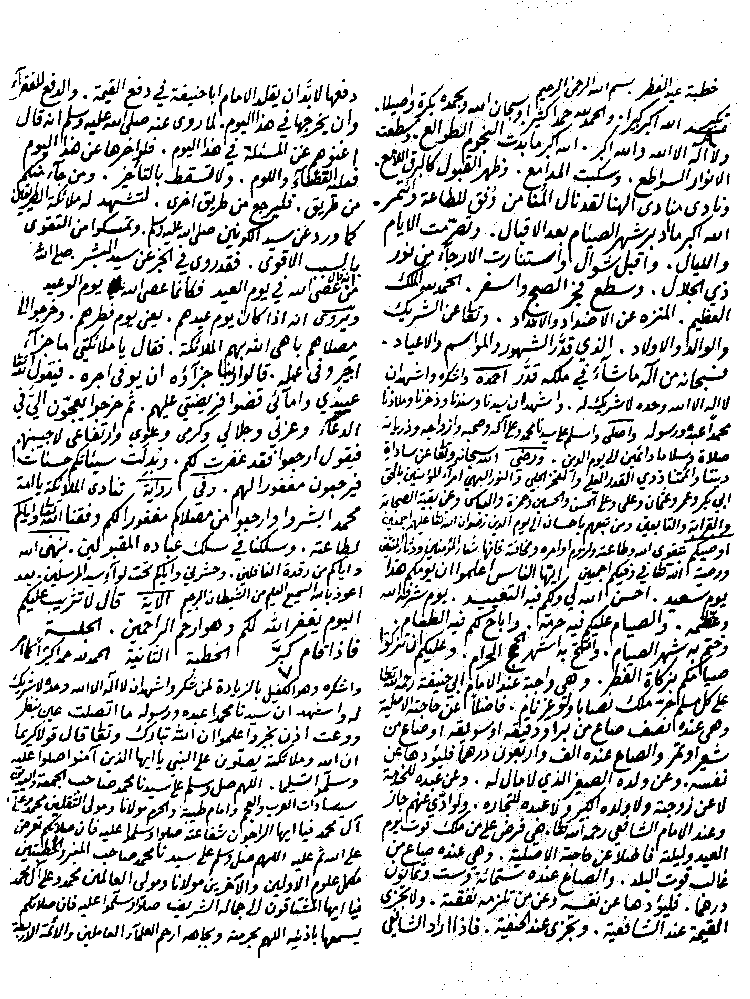 خطبة عيد الفطر بسم الله الرحمن الرحيم
الله اكبر كبيرا والحمد لله حمدا كثيرا وسبحان الله وبحمده بكرة واصيلا
ولا اله الا الله والله اكبر . الله اكبر ما بدت النجوم الطوالع . وسطعت
الانوار السواطع . وسكبت المدامع . وظهر القبول كالبرق اللامع
ونادى منادى الهنا لقد نال المنا من وفق للطاعة
الله اكبر ما ادبر شهر الصيام بعد الاقبال . وتصرمت الايام
والليال . واقبل شوال واستنارت الارجاء من نور
ذي الجلال . وسطع فجر الصبح واسفر . الحمد لله الملك
العظيم . المنزه عن الاضداد والانداد . وتعالى عن الشريك
والوالد والاولاد . الذي قدر الشهور والمواسم والاعياد .
فسبحانه من اله ما شاء في ملكه قدر احمده واشكره واشهد ان
لا اله الا الله وحده لا شريك له . واشهد ان سيدنا وسندنا وذخرنا وملاذنا
محمدا عبده ورسوله واصلي واسلم على سيدنا محمد وعلى آله وصحبه وازواجه وذرياته
صلاة وسلاما دائمين الى يوم الدين . ورضي الله سبحانه وتعالى عن ساداتنا
ذوي القدر العلي امراء المؤمنين
ابي بكر وعمر وعثمان وعلي وعلى الحسن والحسين وحمزة والعباس وعن بقية الصحابة
والقرابة والتابعين ومن تبعهم باحسان الى يوم الدين رضوان الله تعالى عليهم اجمعين
اوصيكم بتقوى الله وطاعته
ايها الناس اعلموا ان يومكم هذا
يوم سعيد . احسن الله لي ولكم فيه التعييد . يوم شرفه الله
وعظمه . والصيام عليكم فيه حرمه . واباح لكم فيه الطعام .
وختم به شهر الصيام . وافتتح به اشهر الحج الحرام . وعليكم ان تزكوا
صيامكم بزكاة الفطر . وهي واجبة عند الامام ابي حنيفة رحمه الله تعالى
على كل مسلم حر ملك نصابا ولو غير نام . فاضلا عن حاجته الاصلية
وهي عنده نصف صاع من بر او دقيقه او سويقه او صاع من
شعير او تمر والصاع عنده الف واربعون درهما فليؤدها عن
نفسه . وعن ولده الصغير الذي لا مال له . وعن عبده للخدمة
لا عن زوجته ولا ولده الكبير ولا عبده للتجارة . ولو ادى عنهم جاز
وعند الامام الشافعي رحمه الله تعالى هي فرض على من ملك قوت يوم
العيد وليلته فاضلا عن حاجته الاصلية . وهي عنده صاع من
غالب قوت البلد . والصاع عنده ستمائة وست وثمانون
درهما . فليؤدها عن نفسه وعن من تلزمه نفقته . ولا تجزى
القيمة عند الشافعية . وتجزى عند الحنفية . فاذا اراد الشافعي
دفعها لا بد ان يقلد الامام ابا حنيفة في دفع القيمة . والدفع للفقراء
وان يخرجها في هذا اليوم . لما روى عنه صلى الله عليه وسلم انه قال
اغنوهم عن المسئلة في هذا اليوم . فلو اخرها عن هذا اليوم
فعليه القضاء واللوم . ولا تسقط بالتأخير . ومن جاء منكم
من طريق . فليرجع من طريق اخرى . لتشهد له ملائكة الطريقين
كما ورد عن سيد الكونين صلى الله عليه وسلم وتمسكوا من التقوى
بالسبب الاقوى . فقد روى في الخبر عن سيد البشر صلى الله
من عصى الله في يوم العيد فكانما عصى الله يوم الوعيد
ويروى انه اذا كان يوم عيدهم . يعني يوم فطرهم . وخرجوا الى
مصلاهم باهى الله بهم الملائكة . فقال يا ملائكتي ما جزاء
اجير وفى عمله . قالوا ربنا جزاؤه ان يوفى اجره . فيقول الله
عبيدي وامائي قضوا فريضتي عليهم . ثم خرجوا يعجون الي في
الدعاء وعزتي وجلالي وكرمي وعلوي وارتفاعي لاجيبنهم
فيقول ارجعوا فقد غفرت لكم . وبدلت سيئاتكم حسنات
فيرجعون مغفورا لهم . وفي رواية تنادى الملائكة يا امة
محمد ابشروا وارجعوا من مصلاكم مغفورا لكم وفقنا الله واياكم
لطاعته . وسلكنا في سلك عباده المقبولين . نبهني الله
واياكم من رقدة الغافلين . وحشرني واياكم تحت لواء سيد المرسلين . بعد
اعوذ بالله السميع العليم من الشيطان الرجيم الآية قال لا تثريب عليكم
اليوم يغفر الله لكم وهو ارحم الراحمين . الجلسة
فاذا قام كبر الخطبة الثانية الحمد لله حمدا كثيرا كما امر
واشكره وهو الكفيل بالزيادة لمن شكر واشهد ان لا اله الا الله وحده لا شريك
له واشهد ان سيدنا محمدا عبده ورسوله ما اتصلت عين بنظر
ووعت اذن بخبر اعلموا ان الله تبارك وتعالى قال قولا كريما
ان الله وملائكته يصلون على النبي يا ايها الذين آمنوا صلوا عليه
وسلموا تسليما . اللهم صل وسلم على سيدنا محمد صاحب
سيد سادات العرب والعجم وامام طيبة والحرم مولانا ومولى الثقلين محمد وعلى
آل محمد فيا ايها الراجون شفاعته صلوا وسلموا عليه فان صلاتكم تعرض
عليه اللهم صل وسلم على سيدنا محمد صاحب المنبر
مكمل علوم الاولين والآخرين مولانا ومولى العالمين محمد وعلى آل محمد
فيا ايها المشتاقون الى جماله الشريف صلوا وسلموا عليه فان صلاتكم
يسمعها باذنيه اللهم بحرمته وبجاهه ارحم العلماء العاملين والائمة الاربعة